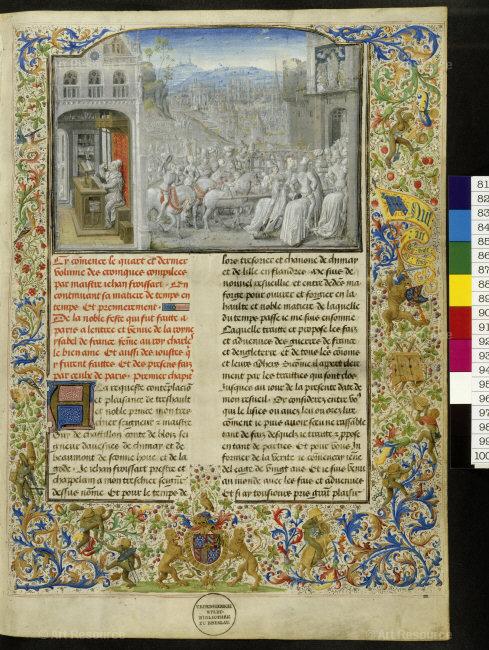 Cy cômence le quart et dernier
volume des croniques compilees
par maistre iehan froissart. En
continuant sa matiere de temps en
temps Et premierement
De la noble feste qui fut faitte a
paris a lentree et venue de la royne
ysabel de france feme au roy charle
le bien ame. Et aussi des ioustes q
y furent faittes. Et des presens fais
par ceulz de paris. Premier chapre
A La requeste contemplacion
et plaisance de treshault
et noble prince mon tres
chier seigneur et maistre
Guy de chastillon conte de blois sei
gneur dauesnes de chimay et de
beaumont de sconnehoue et de la
gode. Je iehan froissart prestre et
chapelain a mon treschier seigneur
dessus nôme. Et pour le temps de
lors tresorier et chanone de chimay
et de lille en flandres. Me suis de
nouuel resueillie et entre dedens ma
forge pour ouurer et forgier en la
haulte et noble matiere de laquelle
du temps passe ie me suis ensonnie
Laquelle traitte et propose les fais
et aduenues des guerres de france
et dengleterre et de tous les
et leurs Sicôme il appert clere
ment par les traitties qui sont clos
iusques au iour de la presente date de
mon resueil. Or considerez entre vo
qui le lisiez ou auez leu ou orez lire
côment ie puis auoir sceu ne rassamble
tant de fais desquelz ie traitte et ppose
en tant de parties. Et pour vous in
former de la verite ie cômencay ieune
del eage de vingt ans. Et ie suis venu
au monde auec les fais et aduenues
Et si ay tousiours pris grant plaisir
STADT-
BIBLIOTHEK
ZU BRESLAU
81
82
83
84
85
86
87
88
89
90
91
92
93
94
95
96
97
98
99
100
Art Resource
Art Resource